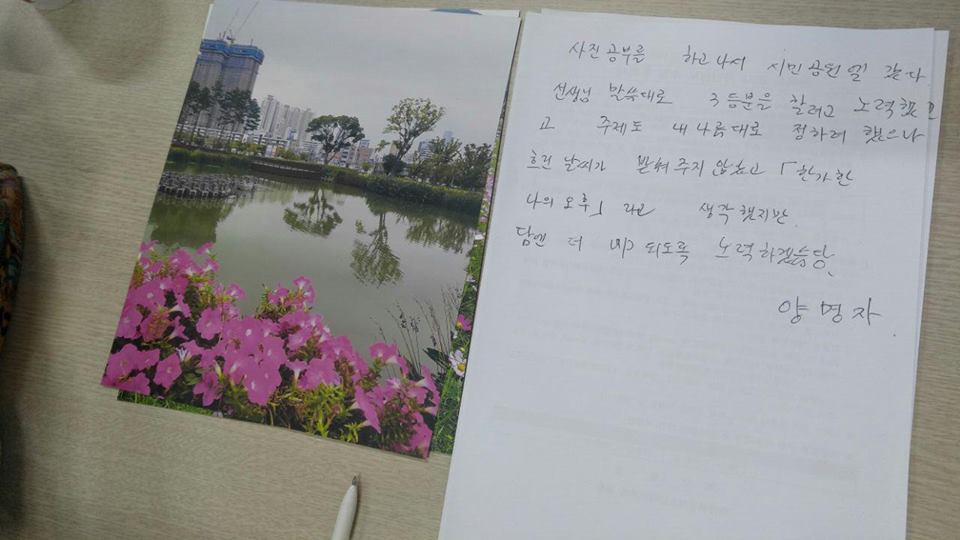 사진공부를 하고나서 시민공원엘 갔다
선생님 말씀대로 3등분을 할려고 노력했고
고 주제도 내나름대로 정하려 했으나
흐린 날씨가 받쳐주지 않았고 「한가한
나의 오후」 라고 생각했지만
담엔 더 노력하겠슴당.
양명자